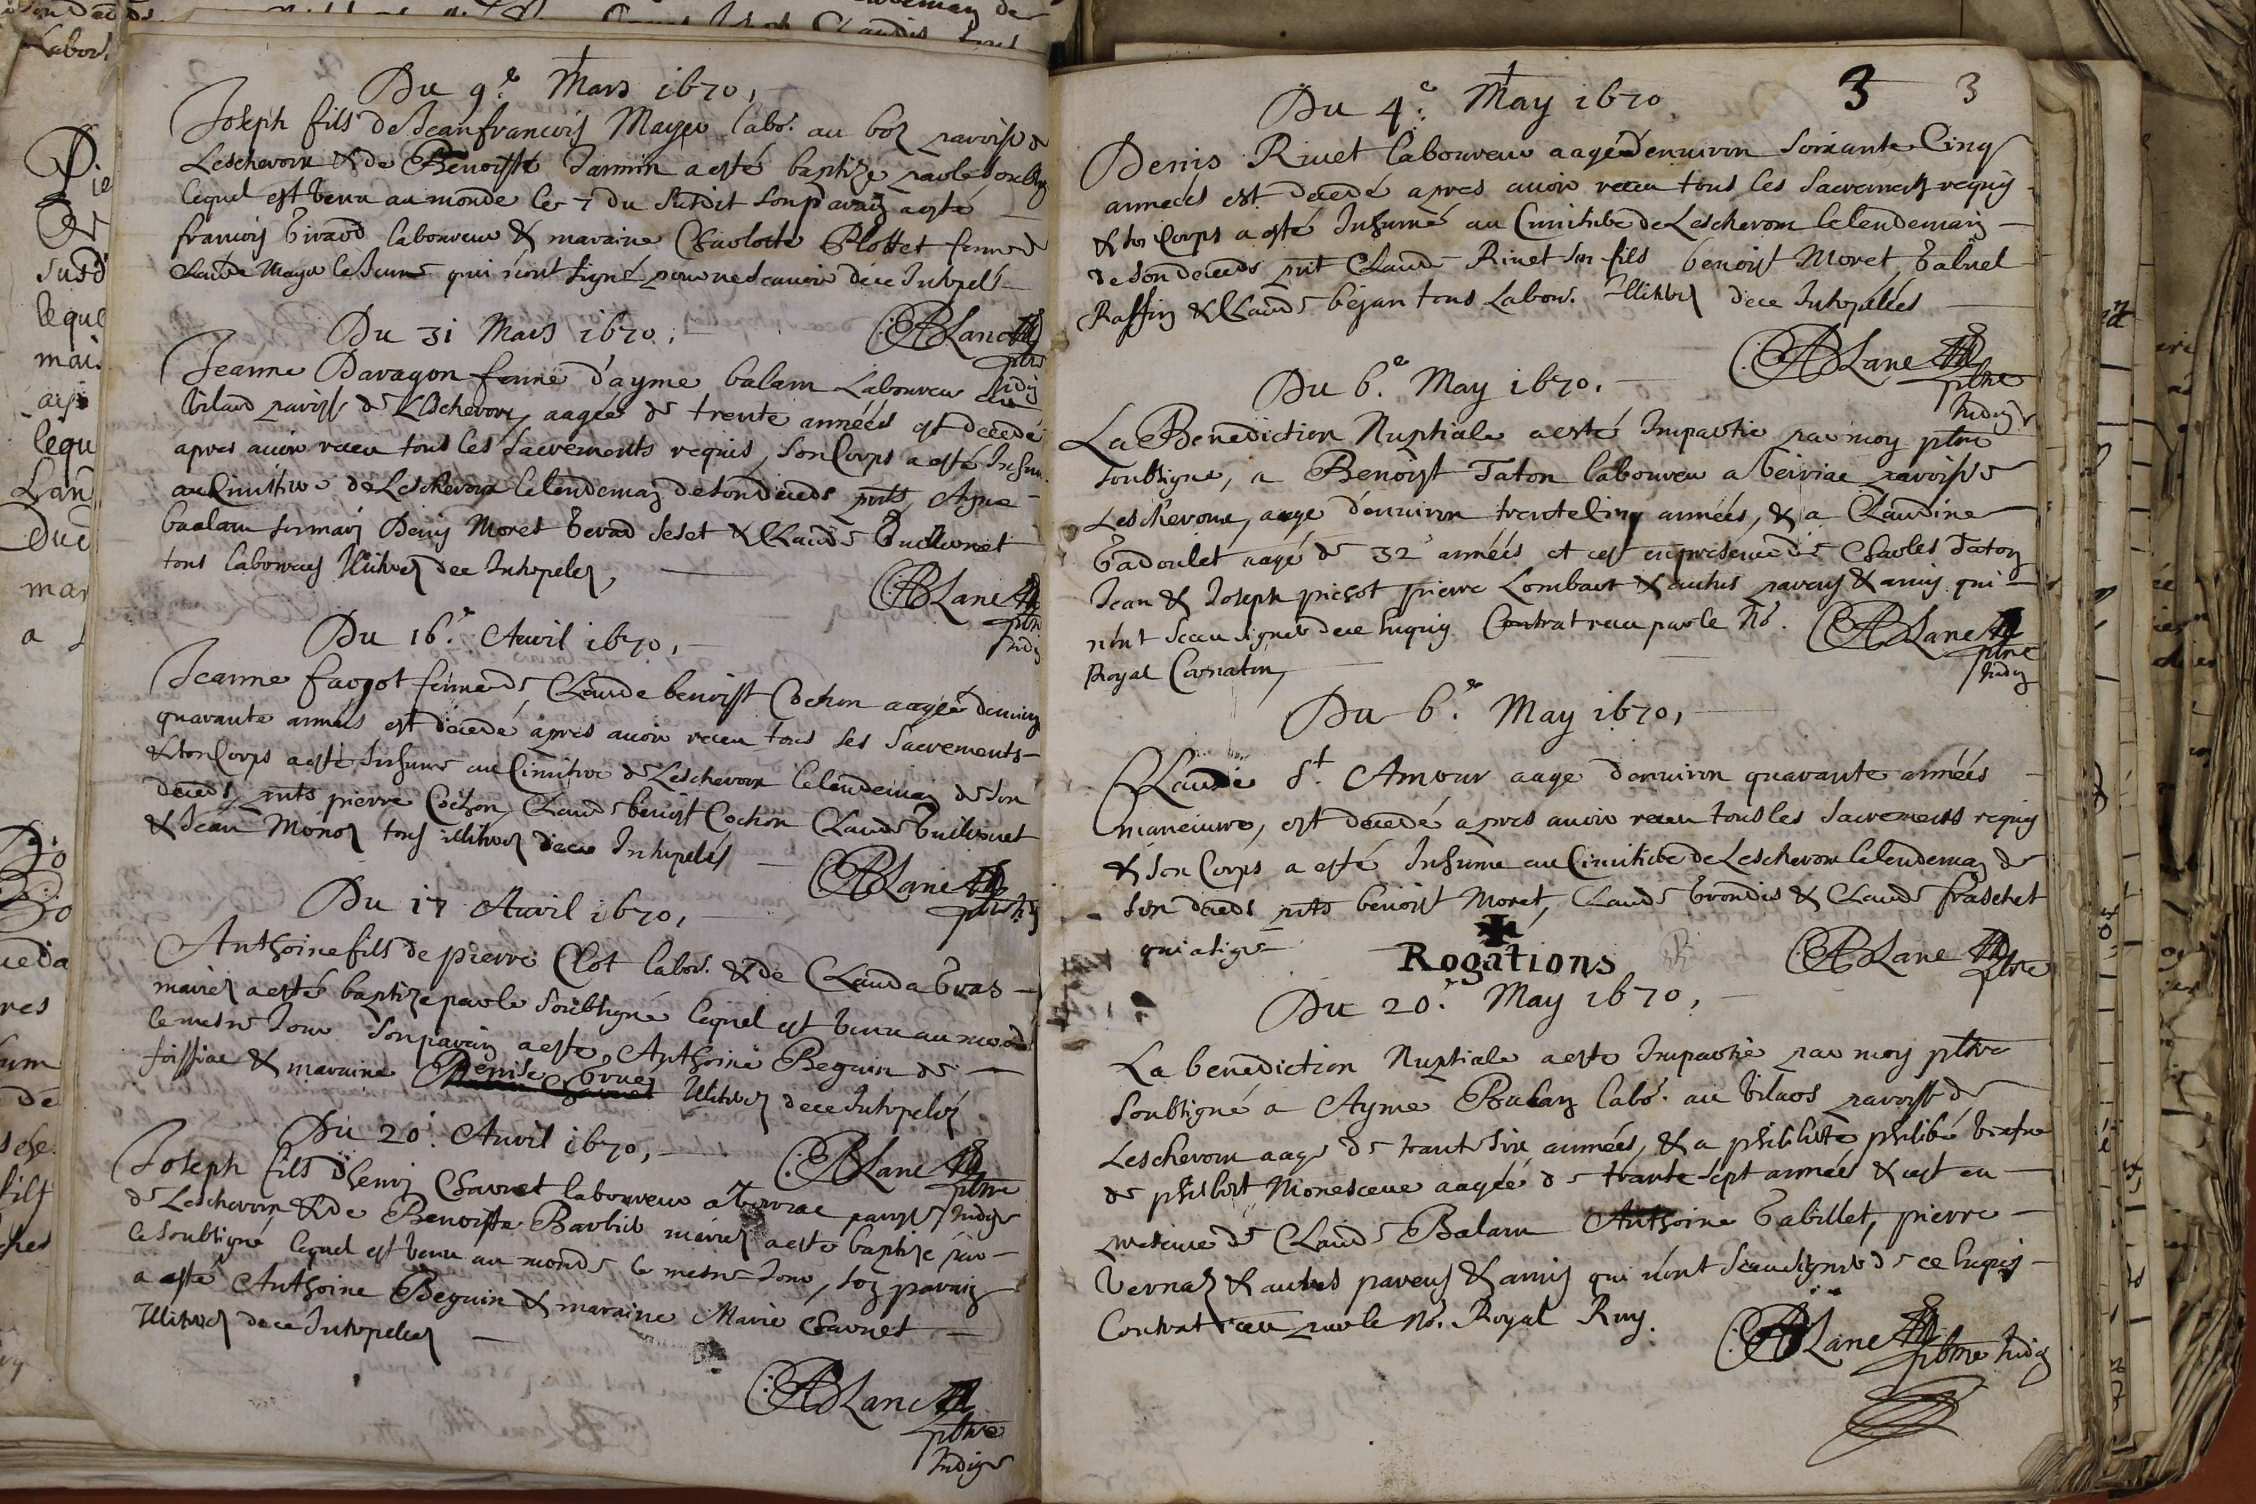 Du 9.e Mars 1670,
Joseph fils de Jeanfrancois Mayeu labo. au bos paroisse de
Lescheroux & de Benoiste Jannin a esté baptize par le soubsig
lequel est venu au monde le 7 du susdit son parain a esté
francois Giraud laboureur & maraine Charlotte Plottet femme de
Claude Mayeu le Jeune qui n'ont signé pour ne scavoir de ce Interpelé
ABLanc ptre Indig
Du 31 Mars 1670,
Jeanne Davagon femme d'ayme balam Laboureur au
Vilard paroisse de Lescheroux, aagée de trente années est decedé
apres avoir receu tous les sacrements requis, son Corps a esté Inhum
au Cimitiere de Lescheroux le lendemain de son deceds pnts, Ayme
baalam son mari Denis Moret & Claude Guillermet
tous laboureurs Illitrez de ce Interpelez,
ABLanc ptre Indig
Du 16.e Avril 1670,
Jeanne fargot femme de Claude benoist Cochon aagée denviron
quarante années est decedé, apres avoir receu tous les Sacrements
& son Corps a esté Inhumé au Cimitiere de Lescheroux le lendemain de son
deceds, pnts pierre Cochon, Claude benoist Cochon Claude Guillermet
& Jean Monoz tous illitrez de ce Interpelés
ABLanc ptre Indig
Du 17 Avril 1670,
Anthoine fils de pierre Clot labor. & de Clauda Gras
mariez a esté baptize par le soubsigné lequel est venu au monde
le mesme Jour son parain a esté, Anthoine Beguin de
foissiac & maraine Denise Gruez Illitrez de ce Interpelez
ABLanc ptre Indigne
Du 20. Avril 1670,
Joseph fils d'henri Charnet laboureur a Veriac paroisse
de Lescheroux & de Benoiste Barbier mariez a esté baptize par
le soubsigné lequel est venu au monde le mesme Jour, son parain
a esté Anthoine Beguin & maraine Marie Charnet
Illitrez de ce Interpelez
ABLanc ptre Indigne
3 3
Du 4.e May 1670,
Denis Rivet laboureur aagé d'environ soixante Cinq
années est decedé apres avoir receu tous les sacremens requis
& son Corps a esté Inhumé au Cimitiere de Lescheroux le lendemain
de son deceds pnt Claude Rivet son fils benoist Moret, Gabriel
Raffin & Claude béjan tous Labour. Illitrez de ce Interpelées
ABLanc ptre Indigne
Du 6.e May 1670.
La Benediction Nuptiale a esté Impartie par moy ptre
soubsigne, a Benoist Taton laboureur a Veiriac paroisse
Lescheroux, aage d'environ trente Cinq années, & a Claudine
Gadoulet aagé de 32 années et cest en presence de Charles Taton
Jean & Joseph pichot pierre Lombart & autres parens & amis qui
n'ont sceu signer de ce Enquis Contrat receu par le No.
Royal Cornaton,
ABLanc ptre Indig
Du 6.e May 1670,
Claude St. Amour aage d'environ quarante années
maneiuvre, est decedé apres avoir receu tous les sacrements requis
& son Corps a esté Inhume au Cimitiere de Lescheroux le lendemain de
son deceds pnts benoist Moret, Claude Grondis & Claude fraschet
qui a signe
ABLanc ptre
Rogations
Du 20.e May 1670,
La benediction Nuptiale a esté Impartie par moy ptre
soubsigné a Ayme Balam labo. au Vilars paroisse de
Lescheroux aage de trante six années, & a philiberte philibé vefve
de philibert Monesceue aagée de trante sept années & cest en
presence de Claude Balam Anthoine Gabillet, pierre
Vernaz & autres parens & amis qui n'ont sceu signer de ce Enquis
Contrat receu par le No. Royal Ruy.
ABLanc ptre Indig